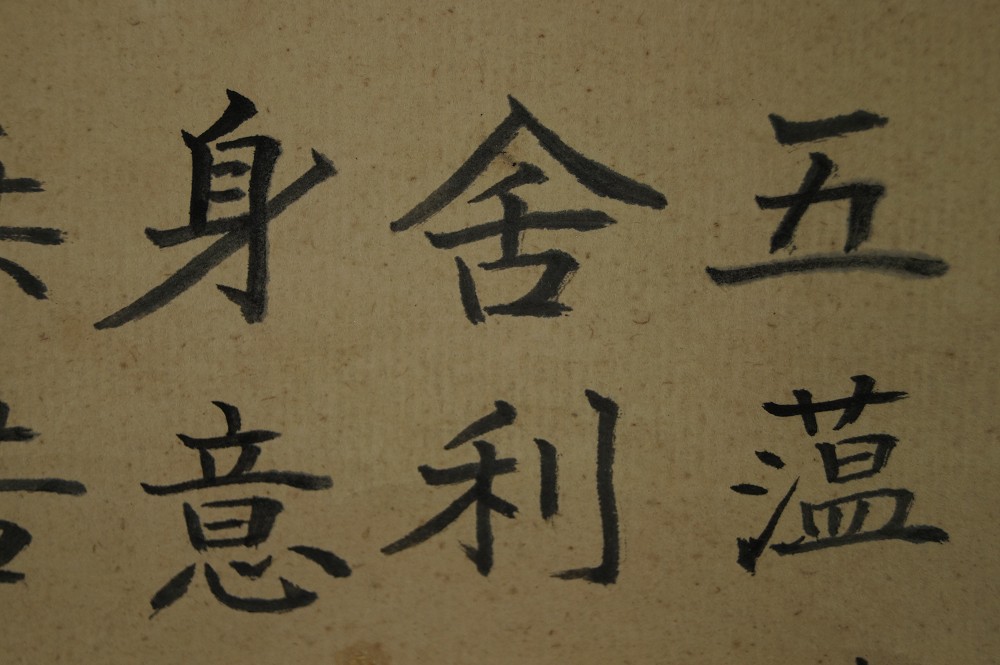 五蕴
舍利
身意